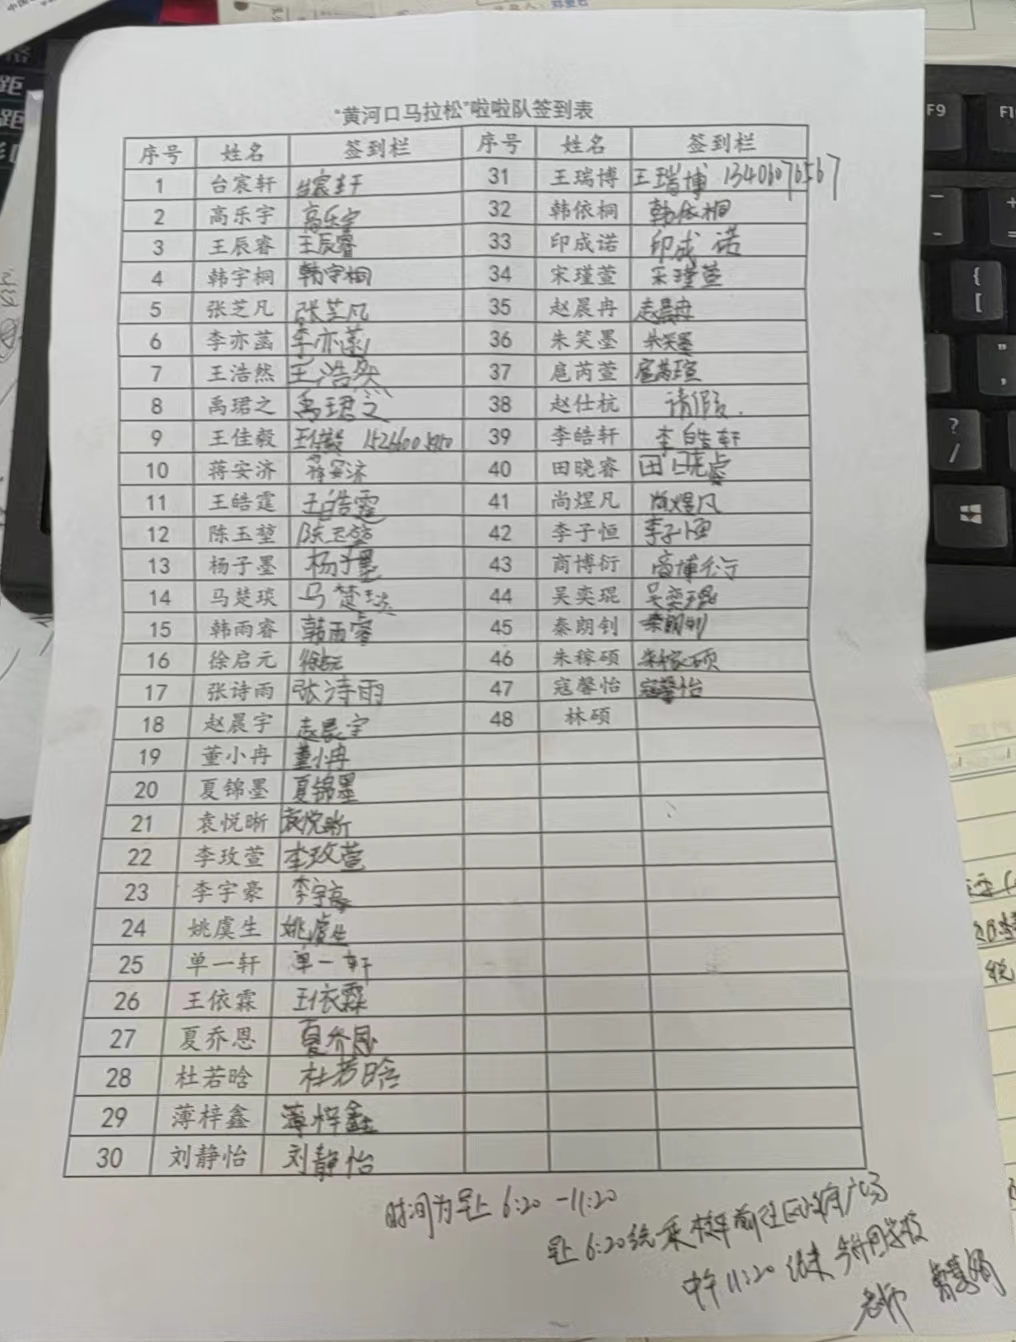 "黄河口马拉松"啦啦队签到表
序号 姓名 签到栏 序号 姓名 签到栏
1 台宸轩 台宸轩 31 王瑞博 王瑞博 13406076567
2 高乐宇 高乐宇 32 韩依桐 韩依桐
3 王辰睿 王辰睿 33 印成诺 印成诺
4 韩宇桐 韩宇桐 34 宋瑾萱 宋瑾萱
5 张芝凡 张芝凡 35 赵晨冉 赵晨冉
6 李亦菡 李亦菡 36 朱笑墨 朱笑墨
7 王浩然 王浩然 37 扈芮萱 扈芮萱
8 禹珺之 禹珺之 38 赵仕杭 请假.
9 王佳毅 王佳毅 39 李皓轩 李皓轩
10 蒋安济 蒋安济 40 田晓睿 田晓睿
11 王皓霆 王皓霆 41 尚煜凡 尚煜凡
12 陈玉堃 陈玉堃 42 李子恒 李子恒
13 杨子墨 杨子墨 43 商博衍 商博衍
14 马楚琰 马楚琰 44 吴奕琨 吴奕琨
15 韩雨睿 韩雨睿 45 秦朗钊 秦朗钊
16 徐启元 徐启元 46 朱稼硕 朱稼硕
17 张诗雨 张诗雨 47 寇馨怡 寇馨怡
18 赵晨宇 赵晨宇 48 林硕
19 董小冉 董小冉
20 夏锦墨 夏锦墨
21 袁悦晰 袁悦晰
22 李玫萱 李玫萱
23 李宇豪 李宇豪
24 姚虞生 姚虞生
25 单一轩 单一轩
26 王依霖 王依霖
27 夏乔恩 夏乔恩
28 杜若晗 杜若晗
29 薄梓鑫 薄梓鑫
30 刘静怡 刘静怡
时间为早上 6:20-11:20
早上 6:20 统一乘校车前往 广场
中午 11:20 结束 学校
老师
F9